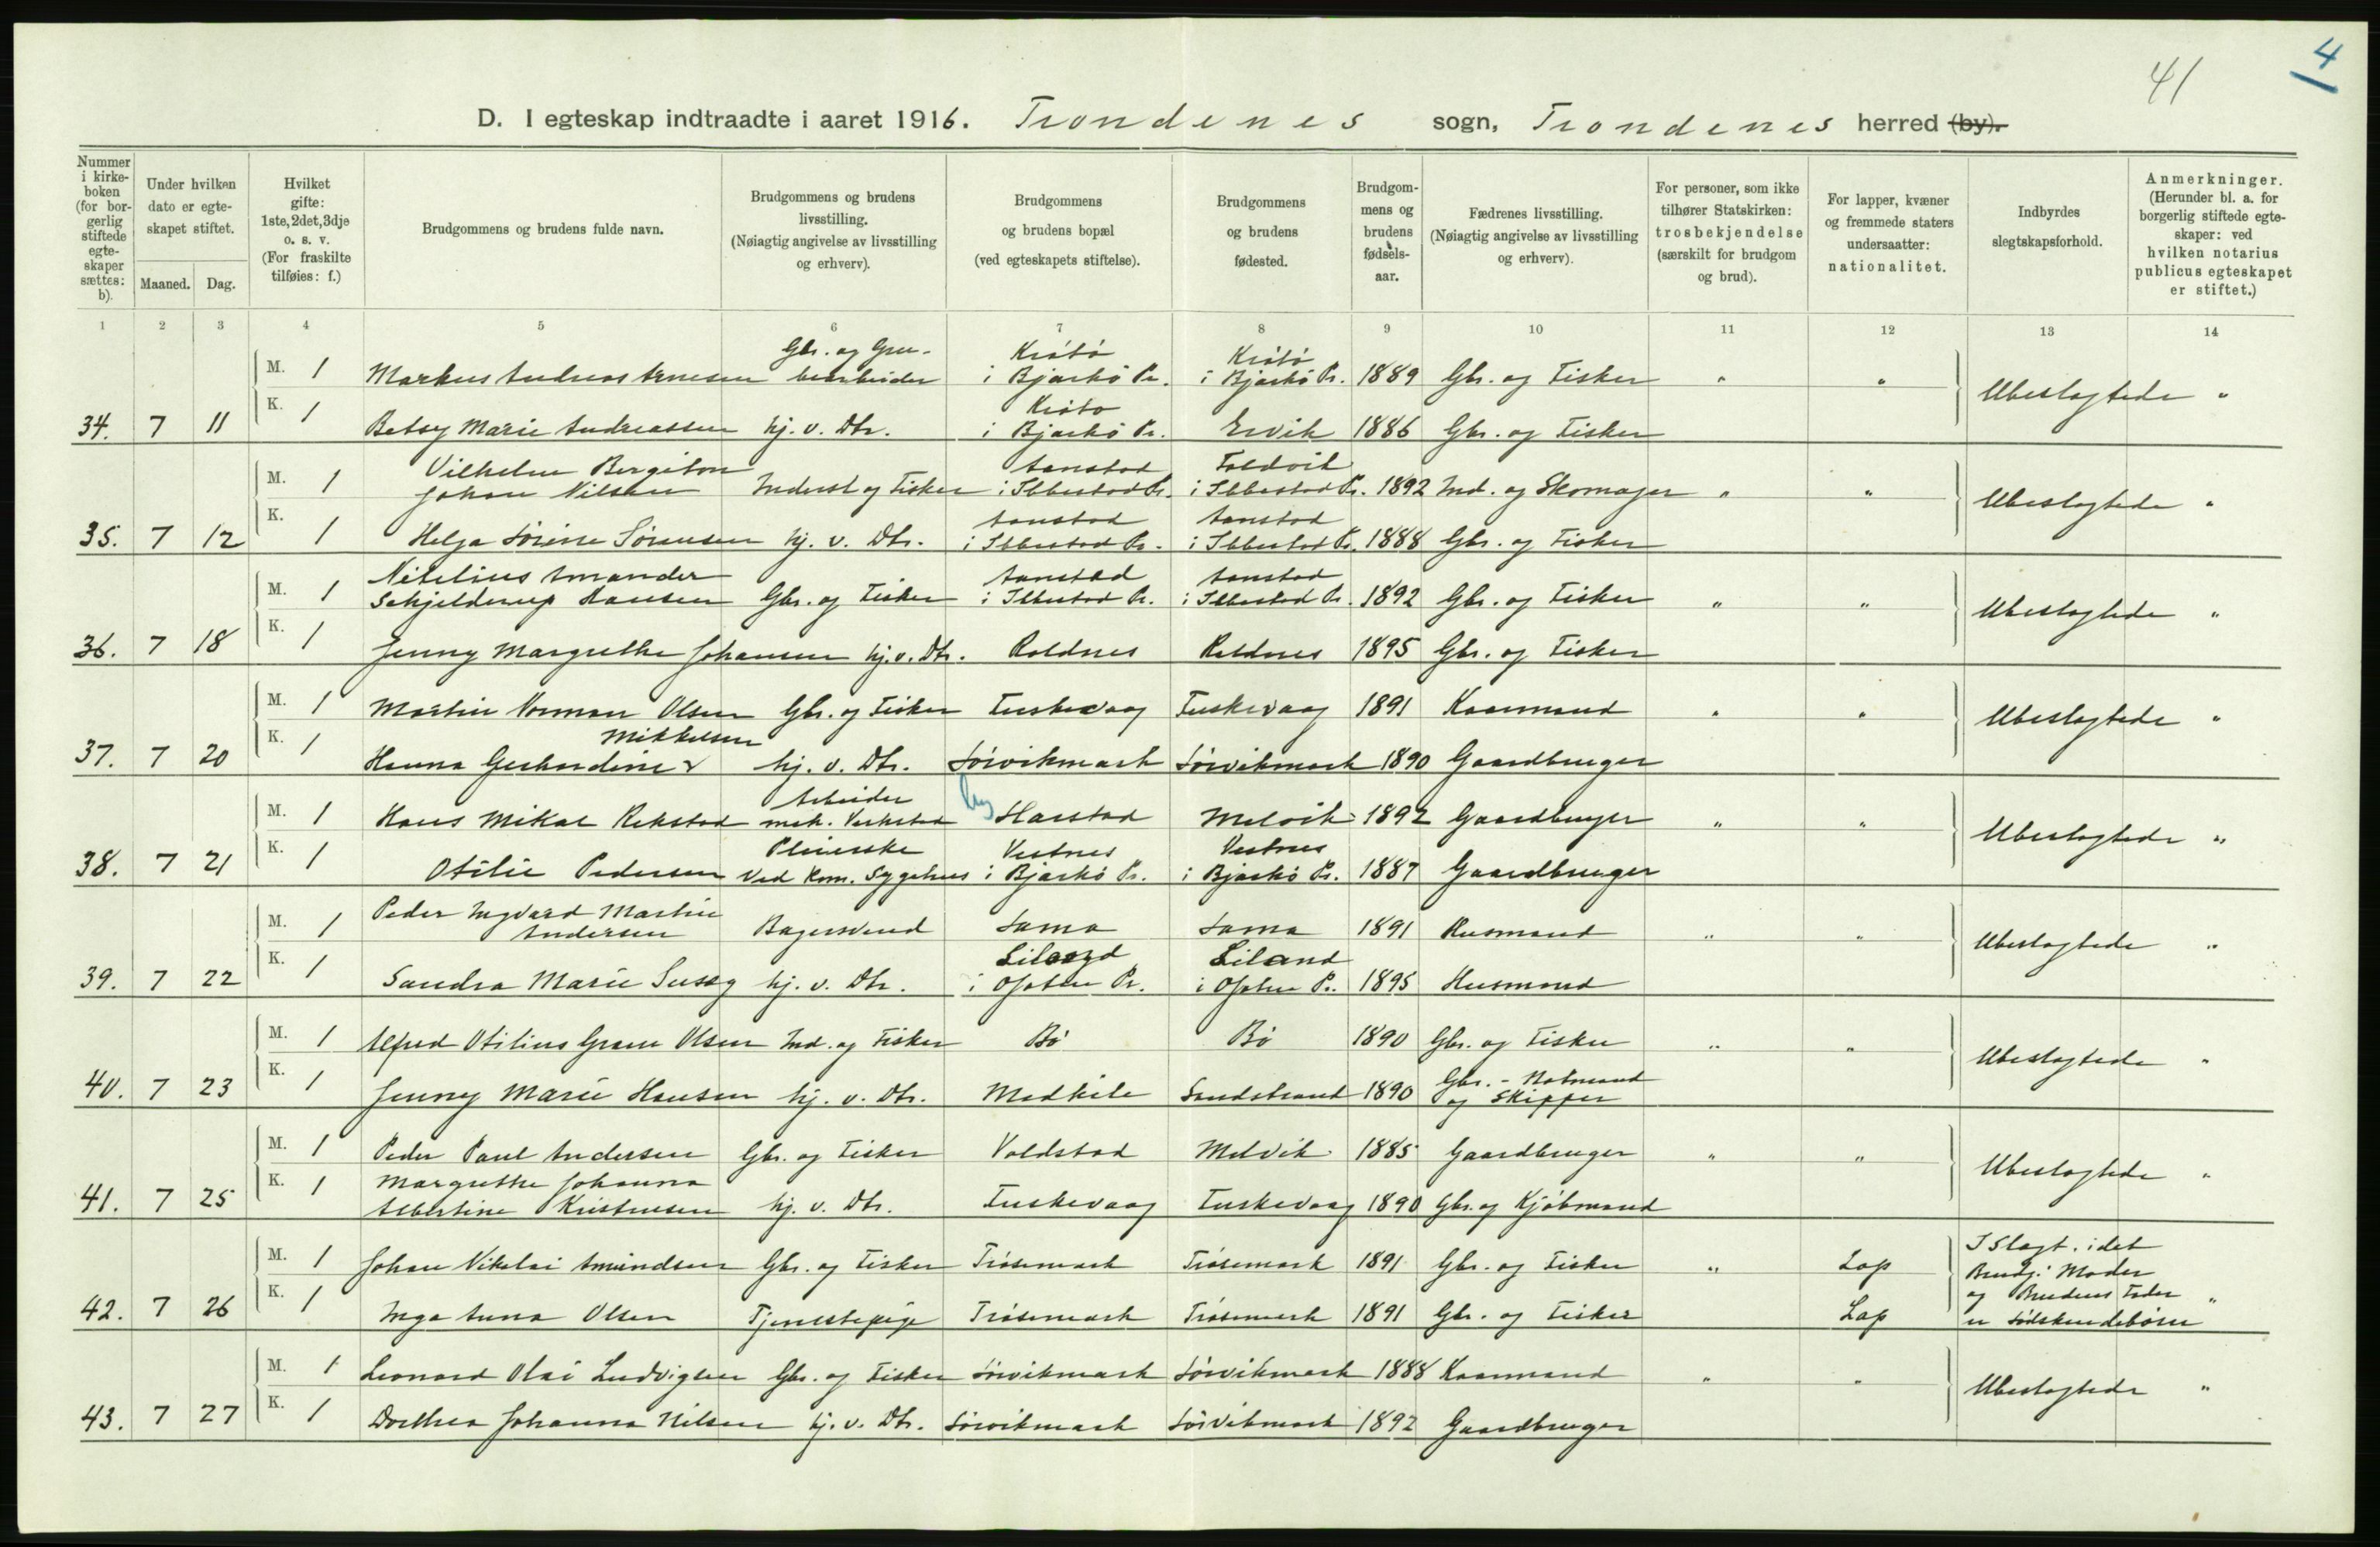 4
41
D. I egteskap indtraadte i aaret 1916. Trondenes sogn, Trondenes herred (by).
Nummer i kirkeboken (for borgerlig stiftede egteskaper sættes: b).
Under hvilken dato er egteskapet stiftet.
Maaned. Dag.
Hvilket gifte: 1ste, 2det, 3dje o. s. v. (For fraskilte tilføies: f.)
Brudgommens og brudens fulde navn.
Brudgommens og brudens livsstilling. (Nøiagtig angivelse av livsstilling og erhverv).
Brudgommens og brudens bopæl (ved egteskapets stiftelse).
Brudgommens og brudens fødested.
Brudgommens og brudens fødselsaar.
Fædrenes livsstilling. (Nøiagtig angivelse av livsstilling og erhverv).
For personer, som ikke tilhører Statskirken: trosbekjendelse (særskilt for brudgom og brud).
For lapper, kvæner og fremmede staters undersaatter: nationalitet.
Indbyrdes slegtskapsforhold.
Anmerkninger. (Herunder bl. a. for borgerlig stiftede egteskaper: ved hvilken notarius publicus egteskapet er stiftet.)
1 2 3 4 5 6 7 8 9 10 11 12 13 14
Gbr. og Gru- Krøtø Krøtø
M. 1 Markus Andreas Arnesen bearbeider i Bjarkö Pr. i Bjarkö Pr. 1889 Gbr. og Fisker " "
Krøtø Ubeslægtede "
34. 7 11 K. 1 Betsy Marie Andreassen hj. v. Dtr. i Bjarkö Pr. Ervik 1886 Gbr. og Fisker
Vilhelm Bergiton Aanstad Foldvik
M. 1 Johan Nilsen Inderst og Fisker i Ibbestad Pr. i Ibbestad Pr. 1892 Ind. og Skomager " "
Aanstad Aanstad Ubeslægtede "
35. 7 12 K. 1 Helga Sørine Sørensen hj. v. Dtr. i Ibbestad Pr. i Ibbestad Pr. 1888 Gbr. og Fisker
Aanstad Aanstad
M. 1 Schjelderup Hansen Gbr. og Fisker i Ibbestad Pr. i Ibbestad Pr. 1892 Gbr. og Fisker " "
Ubeslægtede "
36. 7 18 K. 1 Jenny Margrethe Johansen hj. v. Dtr. Roldnes Roldnes 1895 Gbr. og Fisker
M. 1 Martin Norman Olsen Gbr. og Fisker Fuskevaag Fuskevaag 1891 Kaarmand " "
Mikkelsen Ubeslægtede "
37. 7 20 K. 1 Hanna Gerhardine hj. v. Dtr. Sørvikmark Sørvikmark 1890 Gaardbruger
Arbeider
M. 1 Hans Mikal Rekstad mek. Verksted Harstad Melvik 1892 Gaardbruger " "
Pleierske Vestnes Vestnes Ubeslægtede "
38. 7 21 K. 1 Otilie Pedersen Ved Kom. Sygehus i Bjarkö Pr. i Bjarkö Pr. 1887 Gaardbruger
Peder Ingvard Martin
M. 1 Andersen Bagersvend Sama Sama 1891 Husmand " "
Liland Liland Ubeslægtede "
39. 7 22 K. 1 Sandra Marie hj. v. Dtr. i Ofoten Pr. i Ofoten Pr. 1895 Husmand
M. 1 Alfred Otilius Olsen Ind. og Fisker Bø Bø 1890 Gbr. og Fisker " "
Gbr. - Notmand Ubeslægtede "
40. 7 23 K. 1 Jenny Marie Hansen hj. v. Dtr. Medkile Sandstrand 1890 og Skipper
M. 1 Peder Paul Andersen Gbr. og Fisker Voldstad Melvik 1885 Gaardbruger " "
Margrethe Johanna Ubeslægtede "
41. 7 25 K. 1 Albertine Kristensen hj. v. Dtr. Fuskevaag Fuskevaag 1890 Gbr. og Kjøbmand
I Slægt. idet
M. 1 Johan Nikolai Amundsen Gbr. og Fisker Trøsemark Trøsemark 1891 Gbr. og Fisker " Lap Brudg. Moder
og Brudens Fader "
42. 7 26 K. 1 Inga Anna Olsen Tjenestepige Trøsemark Trøsemark 1891 Gbr. og Fisker Lap er Sødskendebørn
M. 1 Leonard Olai Ludvigsen Gbr. og Fisker Sørvikmark Sørvikmark 1888 Kaarmand " "
Ubeslægtede "
43. 7 27 K. 1 Dorthea Johanna Nilsen hj. v. Dtr. Sørvikmark Sørvikmark 1892 Gaardbruger